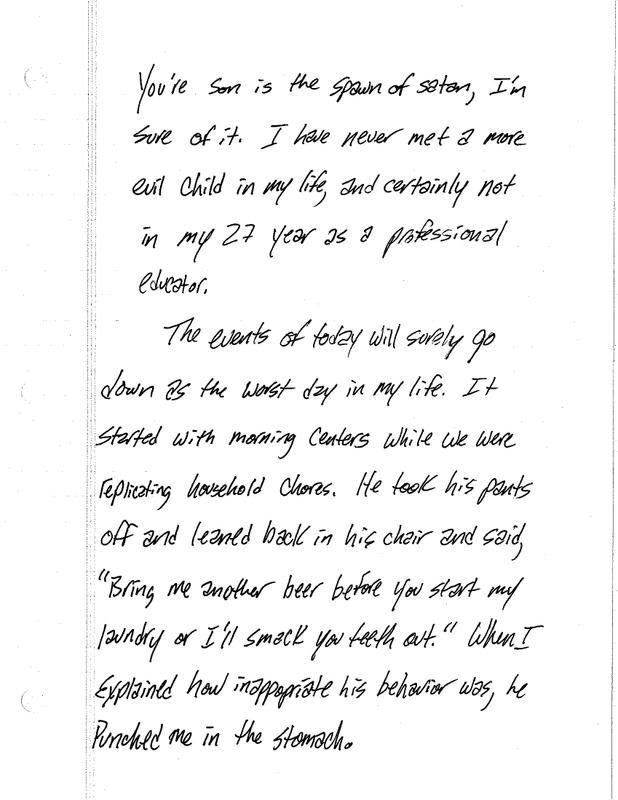 You're son is the spawn of satan, I'm
sure of it. I have never met a more
evil child in my life, and certainly not
in my 27 year as a professional
educator.
The events of today will surely go
down as the worst day in my life. It
started with morning centers while we were
replicating household chores. He took his pants
off and leaned back in his chair and said,
"Bring me another beer before you start my
laundry or I'll smack you teeth out." When I
explained how inappopriate his behavior was, he
punched me in the stomach.